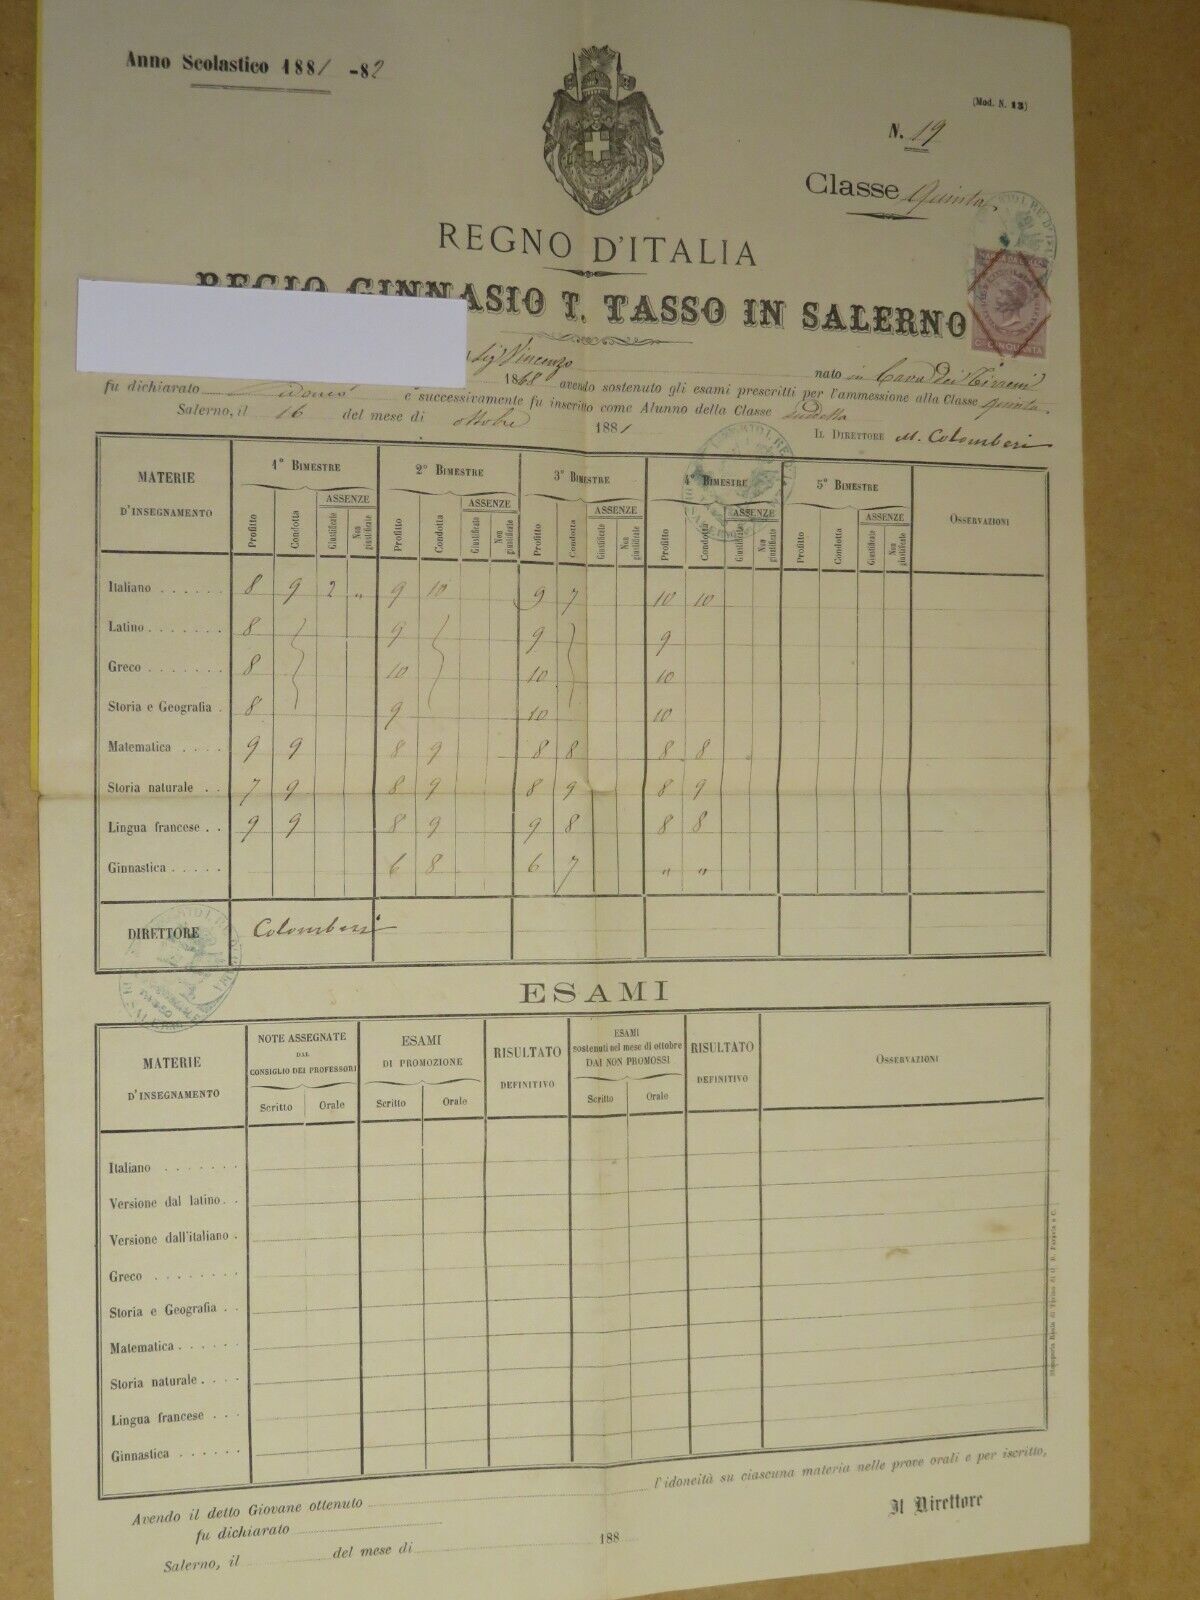 Anno Scolastico 1881 -82
(Mod. N. 13)
N. 19
Classe Quinta
REGNO D'ITALIA
REGIO GINNASIO T. TASSO IN SALERNO
C. CINQUANTA
Sig. Vincenzo nato in Cava dei Tirreni
1868 avendo sostenuto gli esami prescritti per l'ammessione alla Classe quinta
fu dichiarato Idoneo e successivamente fu inscritto come Alunno della Classe suddetta
Salerno, il 16 del mese di ottobre 1881 IL DIRETTORE M. Colomberi
MATERIE D'INSEGNAMENTO 1° BIMESTRE 2° BIMESTRE 3° BIMESTRE 4° BIMESTRE 5° BIMESTRE OSSERVAZIONI
ASSENZE ASSENZE ASSENZE ASSENZE ASSENZE
Profitto Condotta Giustificate Non giustificate Profitto Condotta Giustificate Non giustificate Profitto Condotta Giustificate Non giustificate Profitto Condotta Giustificate Non giustificate Profitto Condotta Giustificate Non giustificate
Italiano . . . . . . 8 9 2 " 9 10 9 7 10 10
Latino . . . . . . . 8 9 9 9
Greco . . . . . . . 8 10 10 10
Storia e Geografia . 8 9 10 10
Matematica . . . . 9 9 8 9 8 8 8 8
Storia naturale . . 7 9 8 9 8 9 8 9
Lingua francese . . 9 9 8 9 9 8 8 8
Ginnastica . . . . . 6 8 6 7 " "
DIRETTORE Colomberi
ESAMI
MATERIE D'INSEGNAMENTO NOTE ASSEGNATE DAL CONSIGLIO DEI PROFESSORI ESAMI DI PROMOZIONE RISULTATO DEFINITIVO ESAMI sostenuti nel mese di ottobre DAI NON PROMOSSI RISULTATO DEFINITIVO OSSERVAZIONI
Scritto Orale Scritto Orale Scritto Orale
Italiano . . . . . . .
Versione dal latino . .
Versione dall'italiano .
Greco . . . . . . . .
Storia e Geografia . .
Matematica . . . . . .
Storia naturale . . . .
Lingua francese . . .
Ginnastica . . . . . .
Avendo il detto Giovane ottenuto l'idoneità su ciascuna materia nelle prove orali e per iscritto,
fu dichiarato
Il Direttore
Salerno, il del mese di 188